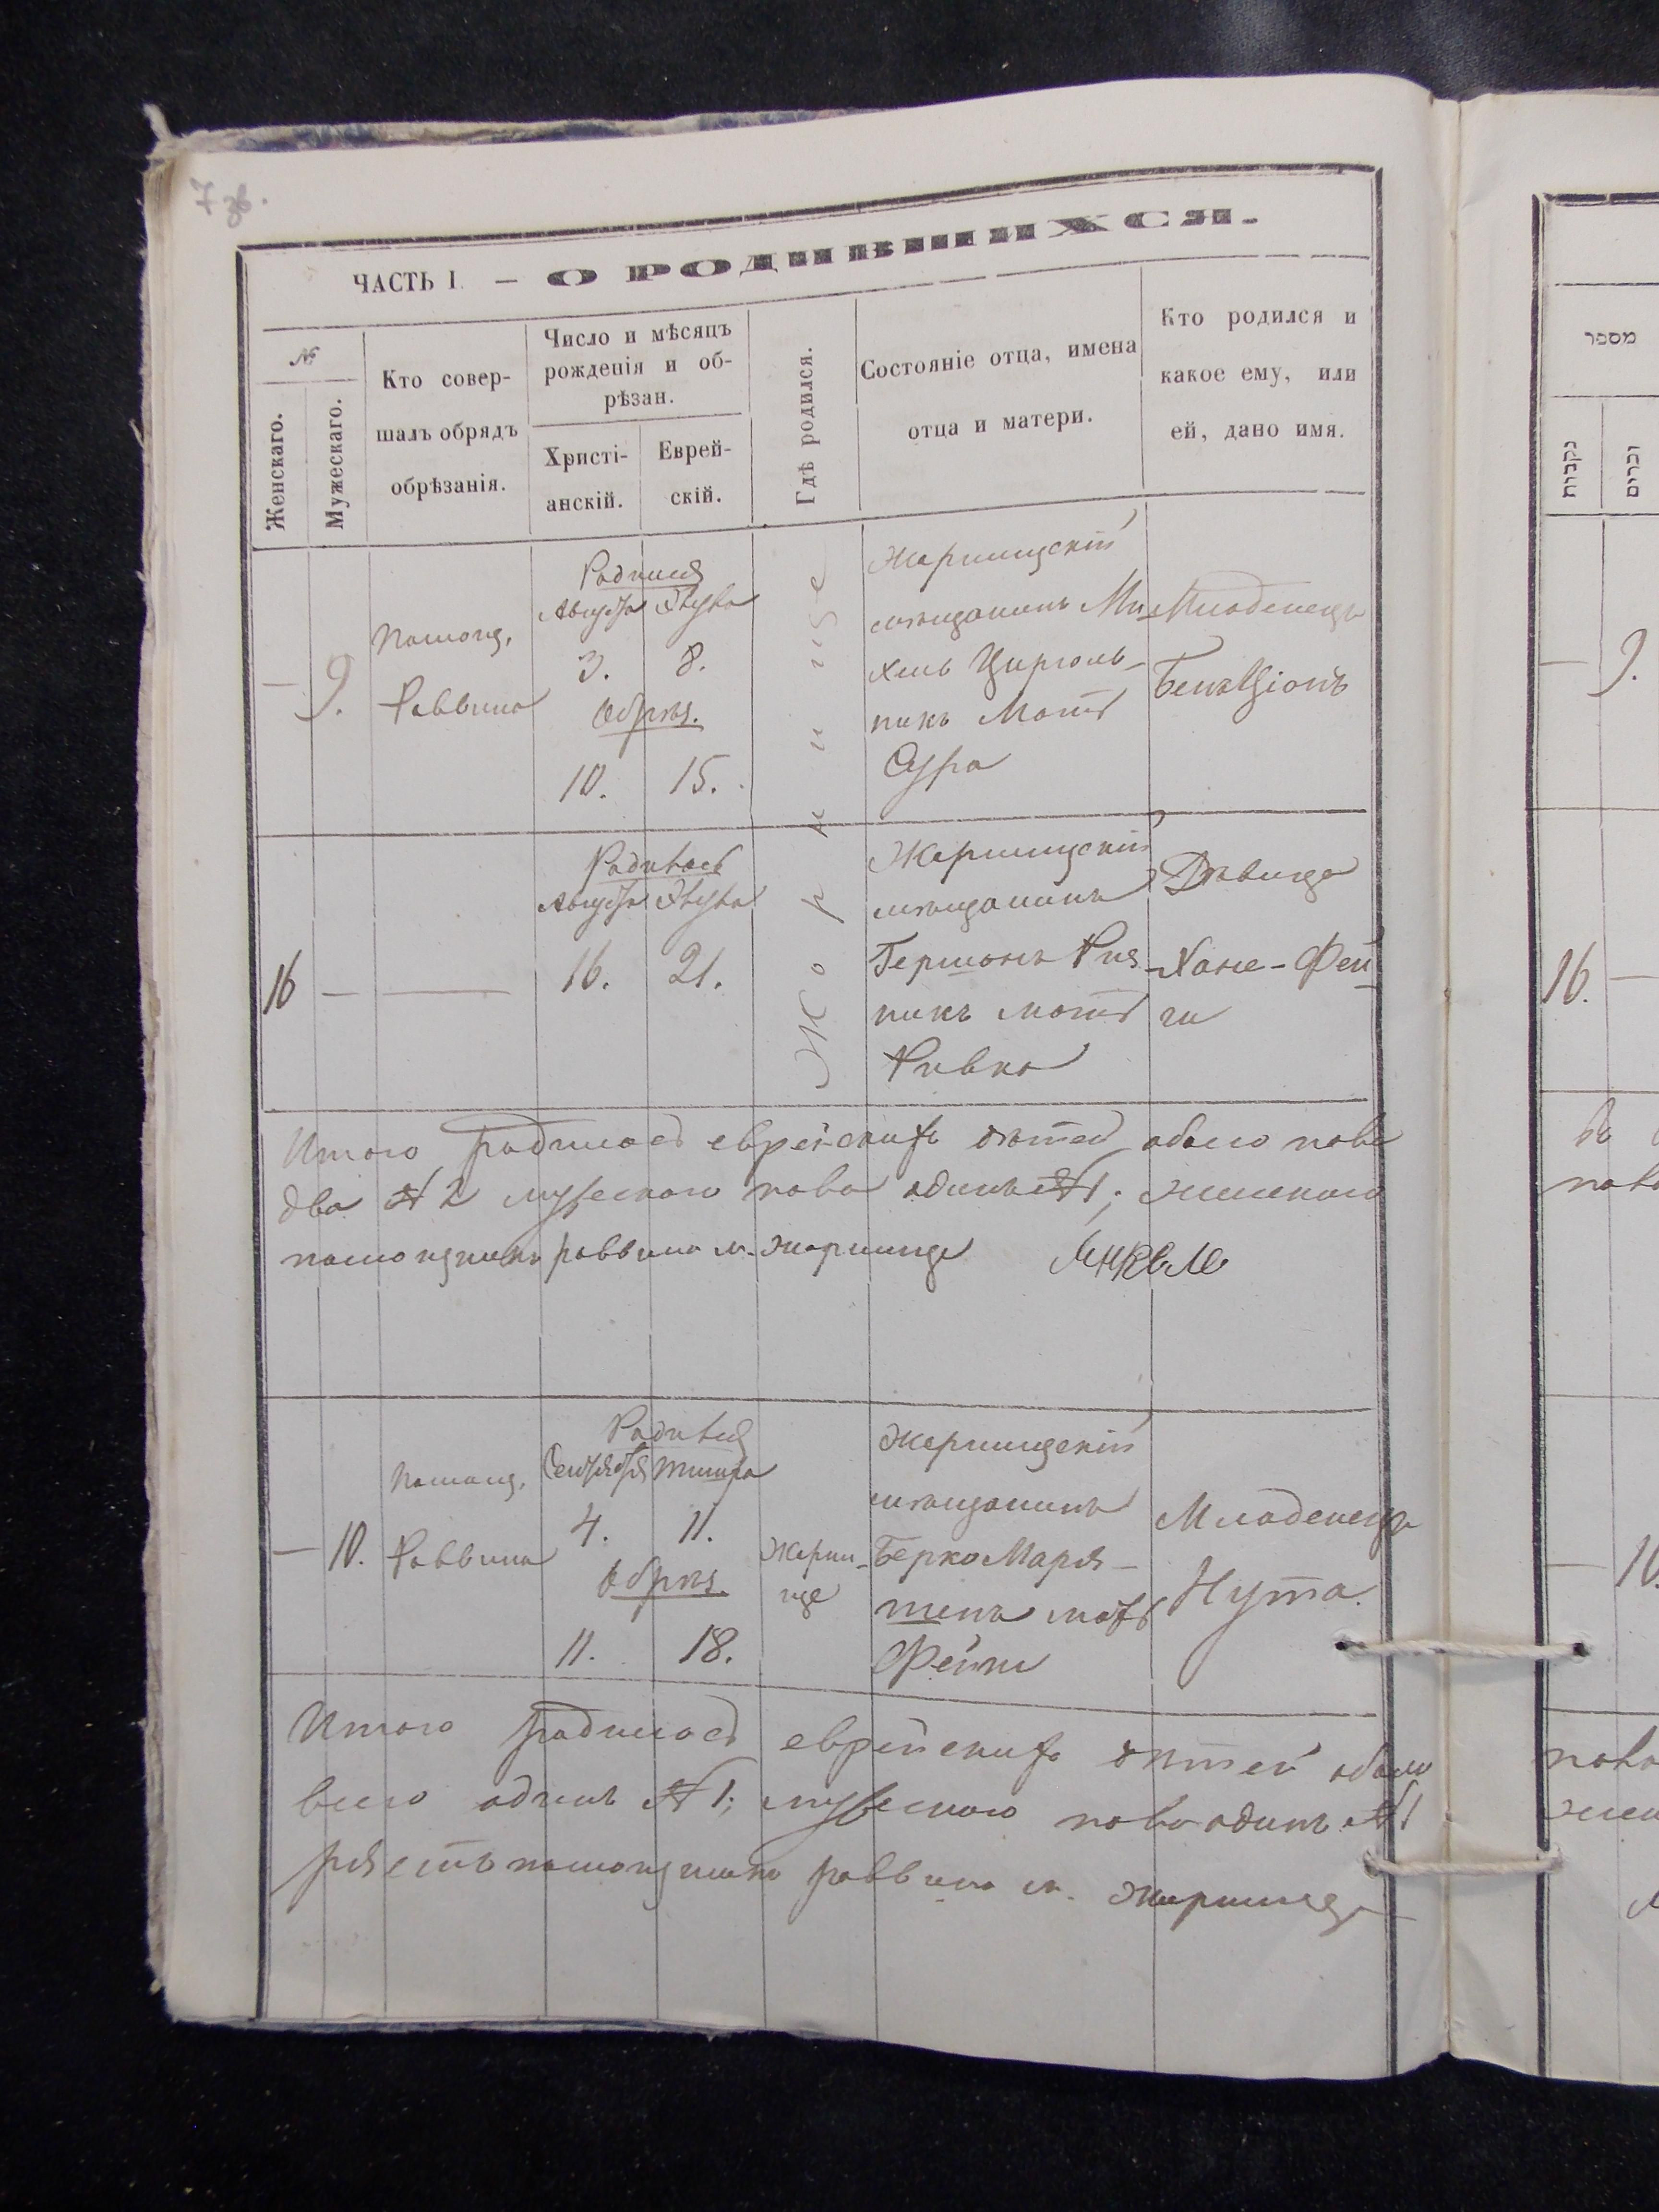 7 зв.
ЧАСТЬ I. — О РОДИВШИХСЯ.
№
Женскаго.
Мужескаго.
Кто совер-
шалъ обрядъ
обрѣзанія.
Число и мѣсяцъ
рожденія и об-
рѣзан.
Христі-
анскій.
Еврей-
скій.
Гдѣ родился.
Состояніе отца, имена
отца и матери.
Кто родился и
какое ему, или
ей, дано имя.
— 9.
Помощ.
Раввина
Родился
Августа
3. 8.
Обрѣз.
10. 15.
Жорнище
Жорнищскій
мѣщанинъ Ми-
хель
никъ Мать
Сура
Младенецъ
БенъЦіонъ
16 — —
Родилась
Августа
16. 21.
Жорнищскій
мѣщанинъ
Гершонъ
никъ мать
Ривка
Дѣвица
Хане-Фей-
ги
Итого родилось еврейскихъ дѣтей обоего пола
два № 2 мужескаго пола одинъ №1; женскаго
помощникъ раввина м. Жорнища
— 10.
Помощ.
Раввина
Родился
Сентября Тишра
4. 11.
Обрѣз.
11. 18.
Жорни-
ще
Жорнищскій
мѣщанинъ
Берко
мать
Младенецъ
Нута.
Итого родилось еврейскихъ дѣтей обоего
всего одинъ №1; мужескаго пола одинъ №1
помощникъ раввина м. Жорнища
מספר
נקבות
זכרים
— 9.
16. —
— 10.